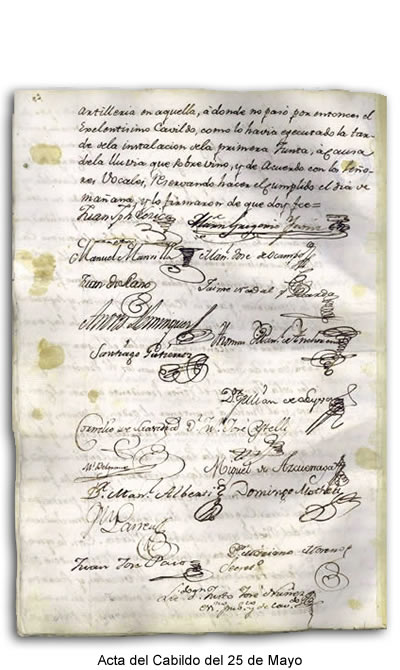 Artilleria en aquella, à donde no pasó por entonces el
Exelentisimo Cavildo, como lo havia executado la tar-
de de la instalacion de la primera Junta, à causa
de la lluvia que sobrevino, y de Acuerdo con los Seño-
res Vocales, reservando hacer el cumplido el dia de
mañana, y lo firmaron de que doy fee=
Juan Jph Lezica Martin Gregorio Yaniz
Manuel Mansilla Man.l José de Ocampo
Juan de Llano Jaime Nadal y Guarda
Andres Dominguez Thomas Man.l de Anchorena
Santiago Gutierrez
D.r Julian de Leyva
Cornelio de Saavedra D.r Ju.n José Castelli
M.l Belgrano Miguel de Azcuenaga
D.r Man.l Alberti Domingo Matheu
Ju.n Larrea
Juan José Passo D.r Mariano Moreno
Secret.o
Lic.do D.n Justo José Nuñez
Acta del Cabildo del 25 de Mayo